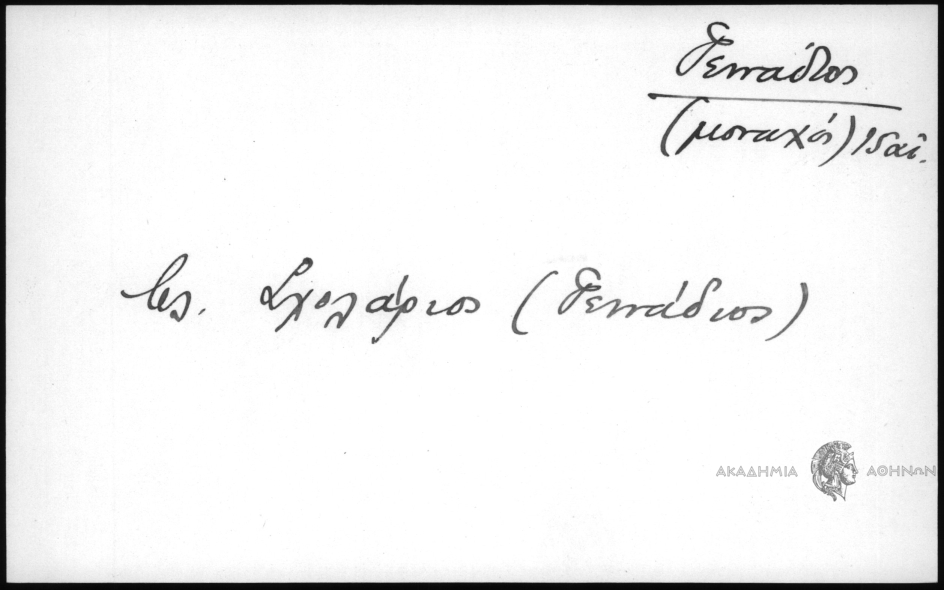 Γεννάδιος
(μοναχός) 15 αἰ.
βλ. Σχολάριος (Γεννάδιος)
ΑΚΑΔΗΜΙΑ ΑΘΗΝΩΝ